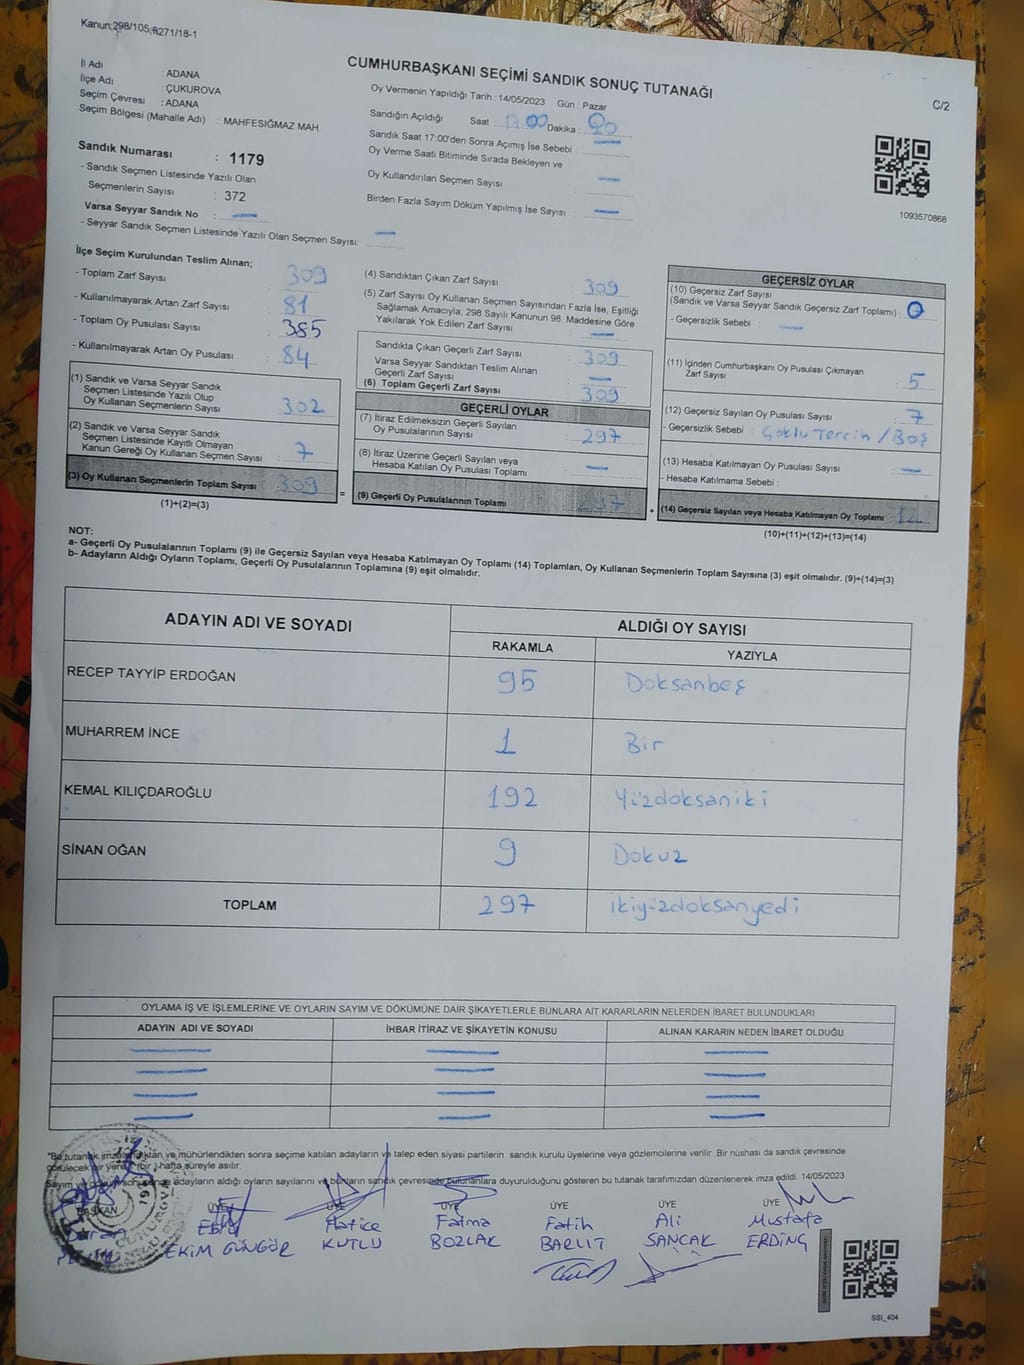 Kanun;298/105;6271/18-1
CUMHURBAŞKANI SEÇİMİ SANDIK SONUÇ TUTANAĞI
C/2
İl Adı : ADANA
İlçe Adı : ÇUKUROVA
Seçim Çevresi : ADANA
Seçim Bölgesi (Mahalle Adı) : MAHFESIĞMAZ MAH.
Sandık Numarası : 1179
- Sandık Seçmen Listesinde Yazılı Olan
Seçmenlerin Sayısı : 372
Varsa Seyyar Sandık No : —
- Seyyar Sandık Seçmen Listesinde Yazılı Olan Seçmen Sayısı: —
Oy Vermenin Yapıldığı Tarih : 14/05/2023 Gün : Pazar
Sandığın Açıldığı Saat : 17.00 Dakika :
Sandık Saat 17:00'den Sonra Açımış İse Sebebi : —
Oy Verme Saati Bitiminde Sırada Bekleyen ve
Oy Kullandırılan Seçmen Sayısı : —
Birden Fazla Sayım Döküm Yapılmış İse Sayısı : —
1093570868
İlçe Seçim Kurulundan Teslim Alınan;
- Toplam Zarf Sayısı : 309
- Kullanılmayarak Artan Zarf Sayısı : 81
- Toplam Oy Pusulası Sayısı : 385
- Kullanılmayarak Artan Oy Pusulası : 84
(1) Sandık ve Varsa Seyyar Sandık
Seçmen Listesinde Yazılı Olup
Oy Kullanan Seçmenlerin Sayısı : 302
(2) Sandık ve Varsa Seyyar Sandık
Seçmen Listesinde Kayıtlı Olmayan
Kanun Gereği Oy Kullanan Seçmen Sayısı : 7
(3) Oy Kullanan Seçmenlerin Toplam Sayısı : 309
(1)+(2)=(3)
=
(4) Sandıktan Çıkan Zarf Sayısı : 309
(5) Zarf Sayısı Oy Kullanan Seçmen Sayısından Fazla İse, Eşitliği
Sağlamak Amacıyla; 298 Sayılı Kanunun 98. Maddesine Göre
Yakılarak Yok Edilen Zarf Sayısı : —
Sandıkta Çıkan Geçerli Zarf Sayısı : 309
Varsa Seyyar Sandıktan Teslim Alınan
Geçerli Zarf Sayısı : —
(6) Toplam Geçerli Zarf Sayısı : 309
GEÇERLİ OYLAR
(7) İtiraz Edilmeksizin Geçerli Sayılan
Oy Pusulalarının Sayısı : 297
(8) İtiraz Üzerine Geçerli Sayılan veya
Hesaba Katılan Oy Pusulası Toplamı : —
(9) Geçerli Oy Pusulalarının Toplamı :
+
GEÇERSİZ OYLAR
(10) Geçersiz Zarf Sayısı
(Sandık ve Varsa Seyyar Sandık Geçersiz Zarf Toplamı) : 0
- Geçersizlik Sebebi : —
(11) İçinden Cumhurbaşkanı Oy Pusulası Çıkmayan
Zarf Sayısı : 5
(12) Geçersiz Sayılan Oy Pusulası Sayısı : 7
- Geçersizlik Sebebi : Çoklu Tercih / Boş
(13) Hesaba Katılmayan Oy Pusulası Sayısı : —
- Hesaba Katılmama Sebebi :
(14) Geçersiz Sayılan veya Hesaba Katılmayan Oy Toplamı : 12
(10)+(11)+(12)+(13)=(14)
NOT:
a- Geçerli Oy Pusulalarının Toplamı (9) ile Geçersiz Sayılan veya Hesaba Katılmayan Oy Toplamı (14) Toplamları, Oy Kullanan Seçmenlerin Toplam Sayısına (3) eşit olmalıdır. (9)+(14)=(3)
b- Adayların Aldığı Oyların Toplamı, Geçerli Oy Pusulalarının Toplamına (9) eşit olmalıdır.
ADAYIN ADI VE SOYADI ALDIĞI OY SAYISI
RAKAMLA YAZIYLA
RECEP TAYYİP ERDOĞAN 95 Doksanbeş
MUHARREM İNCE 1 Bir
KEMAL KILIÇDAROĞLU 192 Yüzdoksaniki
SİNAN OĞAN 9 Dokuz
TOPLAM 297 ikiyüzdoksanyedi
OYLAMA İŞ VE İŞLEMLERİNE VE OYLARIN SAYIM VE DÖKÜMÜNE DAİR ŞİKAYETLERLE BUNLARA AİT KARARLARIN NELERDEN İBARET BULUNDUKLARI
ADAYIN ADI VE SOYADI İHBAR İTİRAZ VE ŞİKAYETİN KONUSU ALINAN KARARIN NEDEN İBARET OLDUĞU
— — —
— — —
— — —
— — —
"Bu tutanak ve mühürlendikten sonra seçime katılan adayların ve talep eden siyasi partilerin sandık kurulu üyelerine veya gözlemcilerine verilir. Bir nüshası da sandık çevresinde
görülecek bir yere (bir) hafta süreyle asılır.
Sayım adayların aldığı oyların sayılarını ve bunların sandık çevresinde bulunanlara duyurulduğunu gösteren bu tutanak tarafımızdan düzenlenerek imza edildi. 14/05/2023
BAŞKAN ÜYE ÜYE ÜYE ÜYE ÜYE ÜYE
Ebru Hatice Fatma Fatih Ali Mustafa
EKİM GÜNGÖR KUTLU BOZLAK BARLIT SANCAK ERDİNÇ
SSI_404